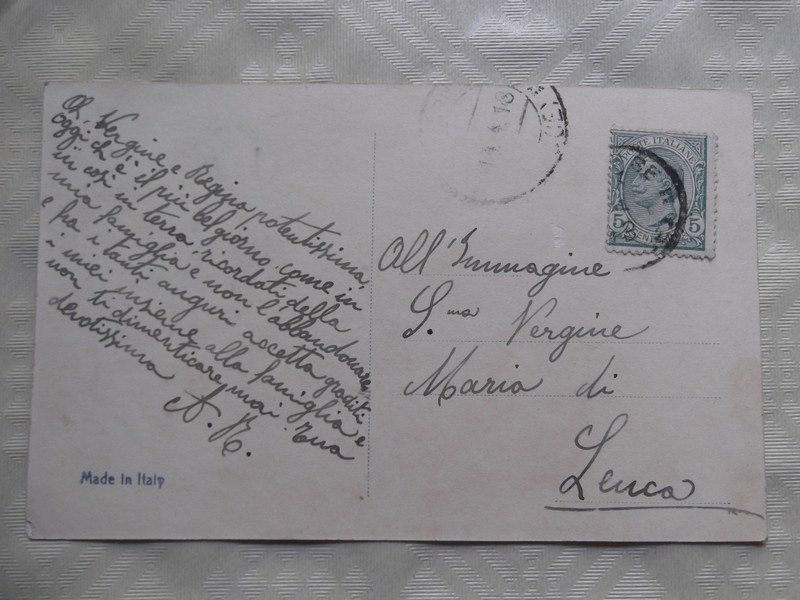 Oh Vergine e Regina potentissima,
oggi ch'è il più bel giorno come in
in così in terra ricordati della
mia famiglia e non l'abbandonare
e fra i tanti auguri accetta graditi
i miei insieme alla famiglia e
non ti dimenticare mai tua
devotissima
A. R.
Made in Italy
14.4.18
POSTE ITALIANE
5 5
CENTESIMI
All'Immagine
S.ma Vergine
Maria di
Leuca